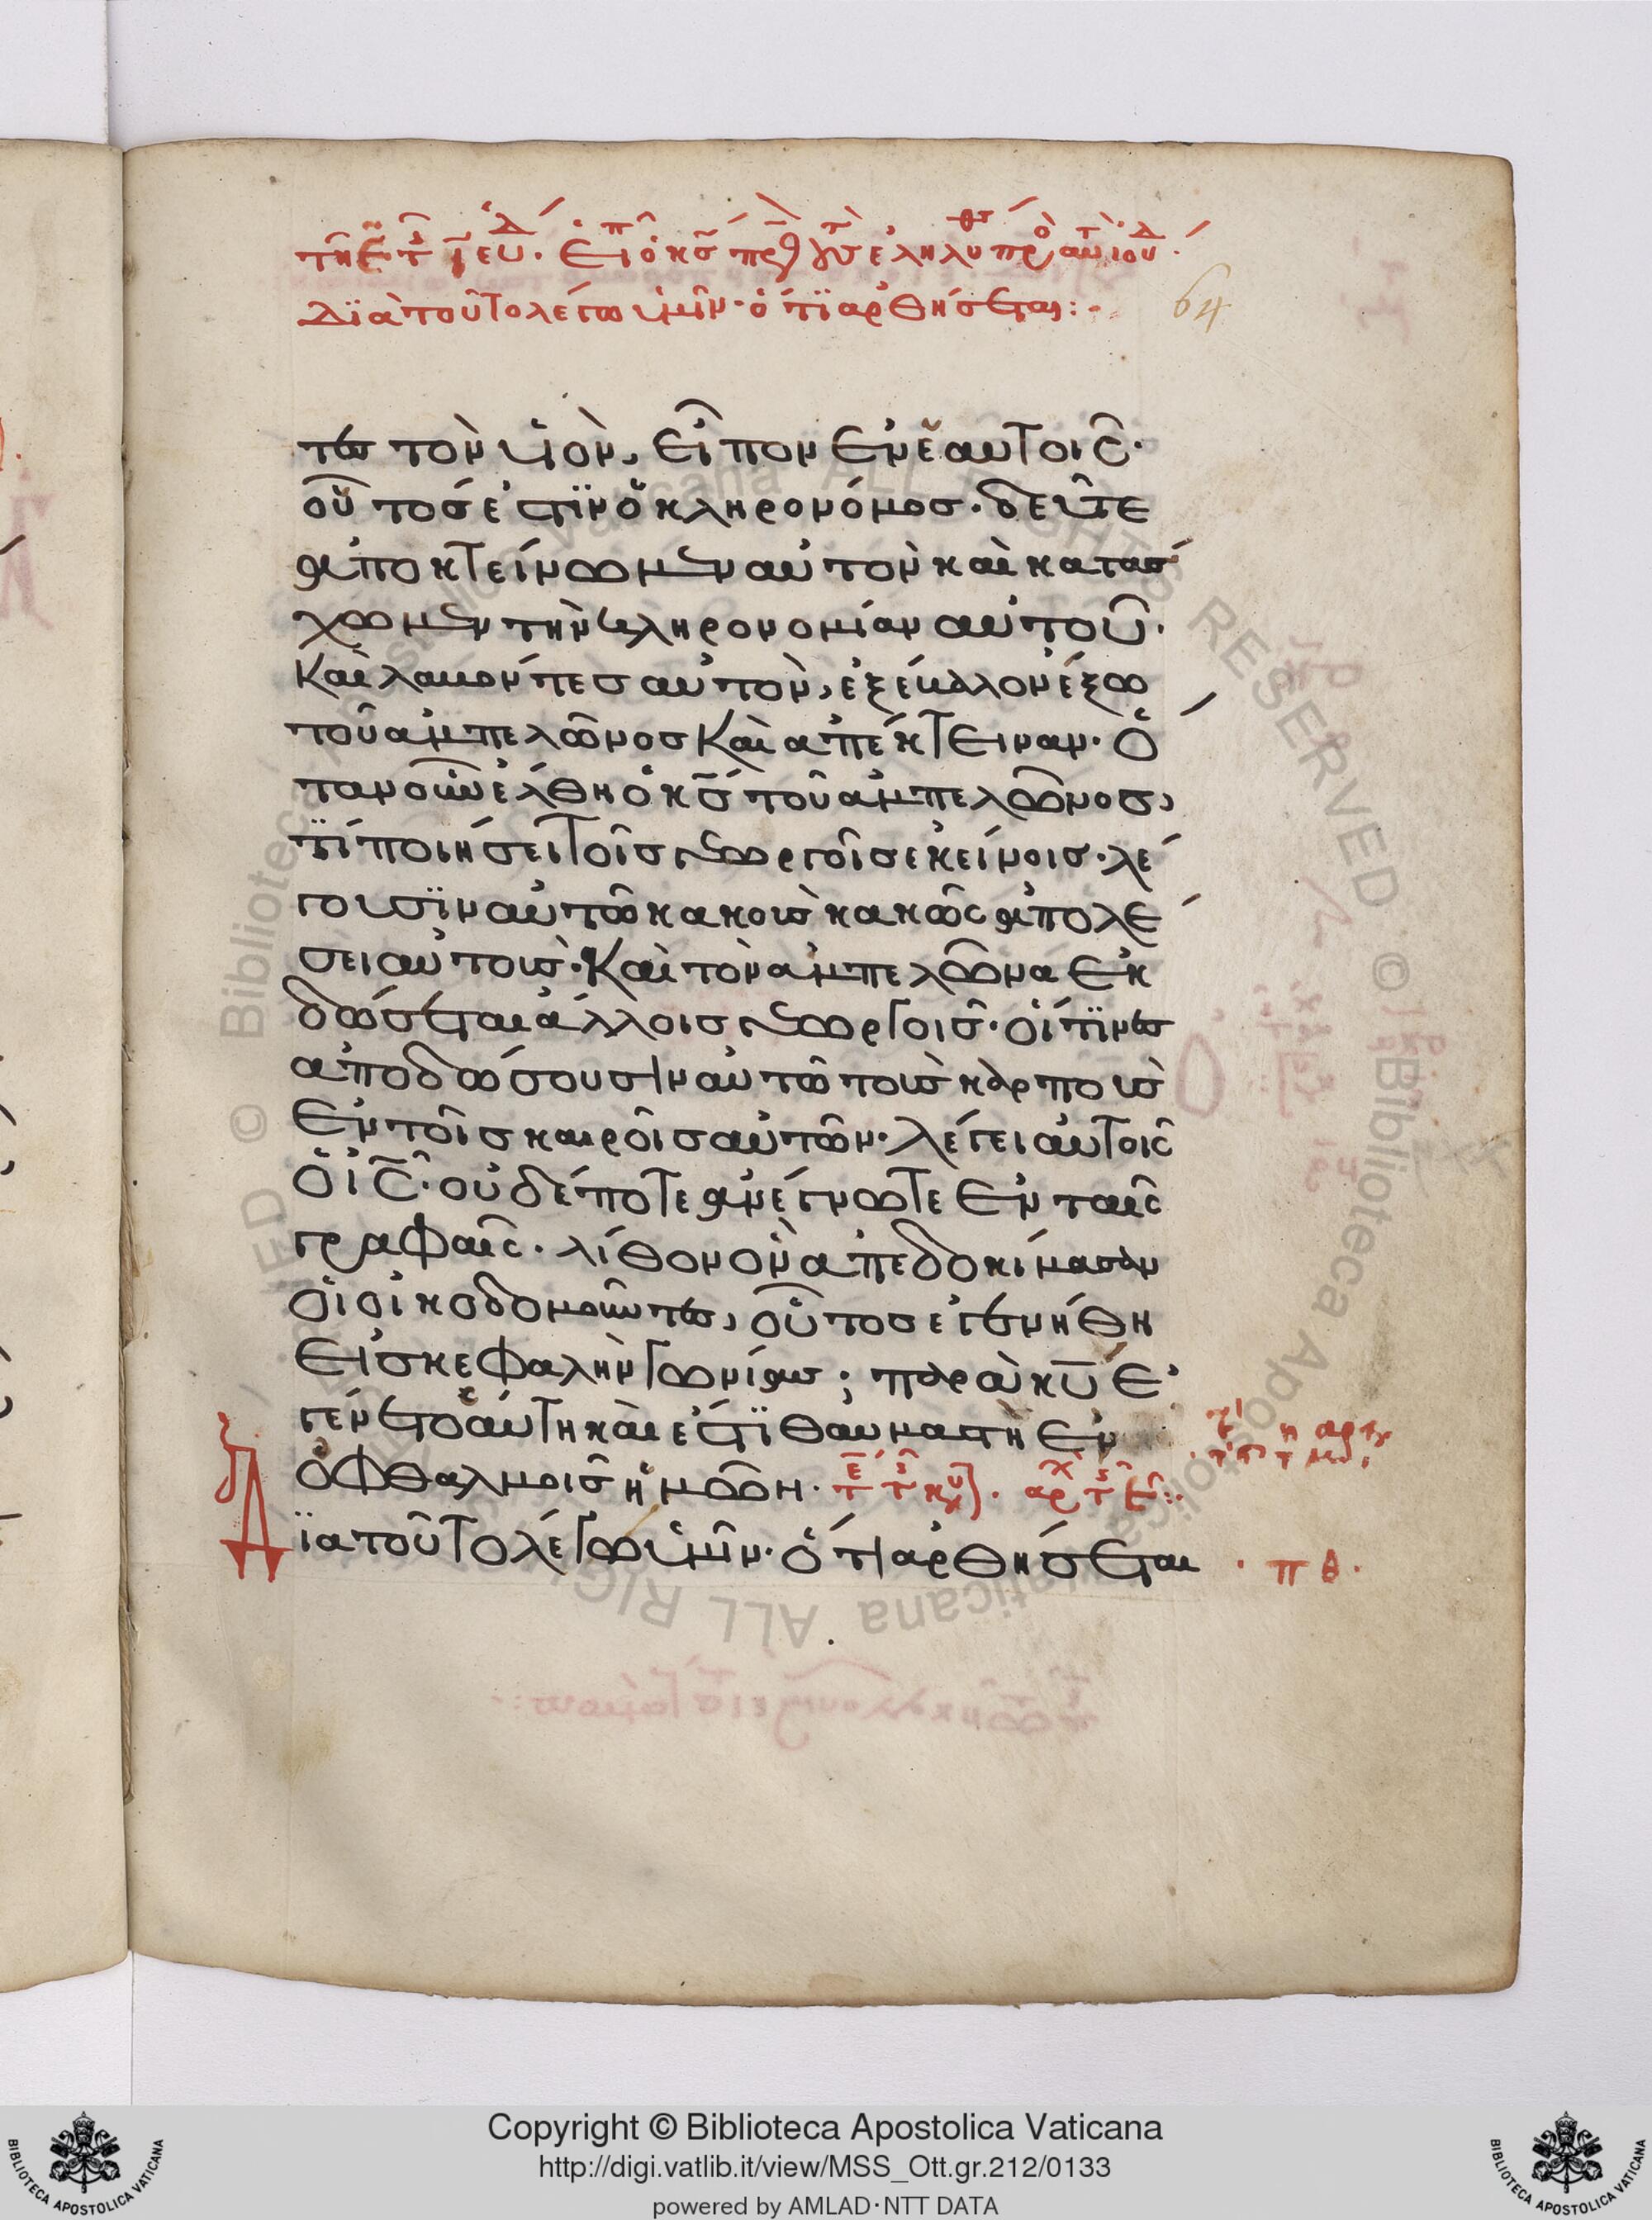 64
Διὰ τοῦτο λέγω ὑμῖν· ὅτι ἀρθήσεται:
τες τὸν υἱὸν, εἶπον ἐν ἑαυτοῖς·
οὗτός ἐστιν ὁ κληρονόμος· δεῦτε
ἀποκτείνωμεν αὐτὸν καὶ κατάσ
χωμεν τὴν κληρονομίαν αὐτοῦ·
Καὶ λαβόντες αὐτὸν, ἐξέβαλον ἔξω
τοῦ ἀμπελῶνος Καὶ ἀπέκτειναν· Ὅ
ταν οὖν ἔλθη ὁ κς τοῦ ἀμπελῶνος,
τί ποιήσει τοῖς γεωργοῖς ἐκείνοις· λέ
γουσιν αὐτῶ κακοὺς κακῶς ἀπολέ
σει αὐτοὺς· Καὶ τὸν ἀμπελῶνα ἐκ
δώσεται ἄλλοις γεωργοῖς· οἵτινες
ἀποδώσουσιν αὐτῶ τοὺς καρποὺς
ἐν τοῖς καιροῖς αὐτῶν· λέγει αὐτοῖς
ὁ ις· οὐδέποτε ἀνέγνωτε ἐν ταῖς
γραφαῖς· λίθον ὃν ἀπεδοκίμασαν
οἱ οἰκοδομοῦντες, οὗτος ἐγενήθη
εἰς κεφαλὴν γωνίας; παρὰ κυ ἐ
γένετο αὕτη καὶ ἔστι θαυμαστὴ ἐν
ὀφθαλμοῖς ἡμῶν·
Διὰ τοῦτο λέγω ὑμῖν· ὅτι ἀρθήσεται
· πθ·
Copyright © Biblioteca Apostolica Vaticana
http://digi.vatlib.it/view/MSS_Ott.gr.212/0133
powered by AMLAD·NTT DATA
BIBLIOTECA APOSTOLICA VATICANA
BIBLIOTECA APOSTOLICA VATICANA
© Biblioteca Apostolica Vaticana ALL RIGHTS RESERVED © Biblioteca Apostolica Vaticana ALL RIGHTS RESERVED